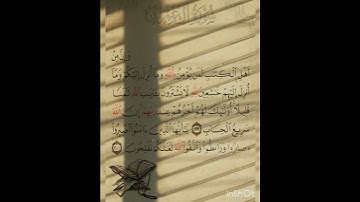 سورة
وَإِنَّ مِنْ
أَهْلِ الْكِتَٰبِ لَمَن يُؤْمِنُ بِاللَّهِ وَمَا أُنزِلَ إِلَيْكُمْ وَمَا
أُنزِلَ إِلَيْهِمْ خَٰشِعِينَ لِلَّهِ لَا يَشْتَرُونَ بِـَٔايَٰتِ اللَّهِ ثَمَنًا
قَلِيلًا أُولَٰئِكَ لَهُمْ أَجْرُهُمْ عِندَ رَبِّهِمْ إِنَّ اللَّهَ
سَرِيعُ الْحِسَابِ يَٰأَيُّهَا الَّذِينَ ءَامَنُوا اصْبِرُوا
وَصَابِرُوا وَرَابِطُوا وَاتَّقُوا اللَّهَ لَعَلَّكُمْ تُفْلِحُونَ
InShOt